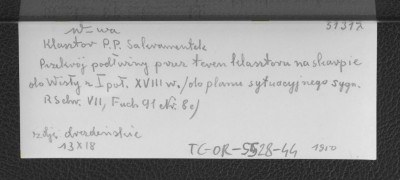 W-wa 31312
Klasztor P.P. Sakramentek
Przekrój podłużny przez teren klasztoru na skarpie
do Wisły z I poł. XVIII w. /do planu sytuacyjnego sygn.
R Schr. VII, Fach 91 Nr. 8c/
zdj. drezdeńskie
13x18 TG-OR-5528-44 1950